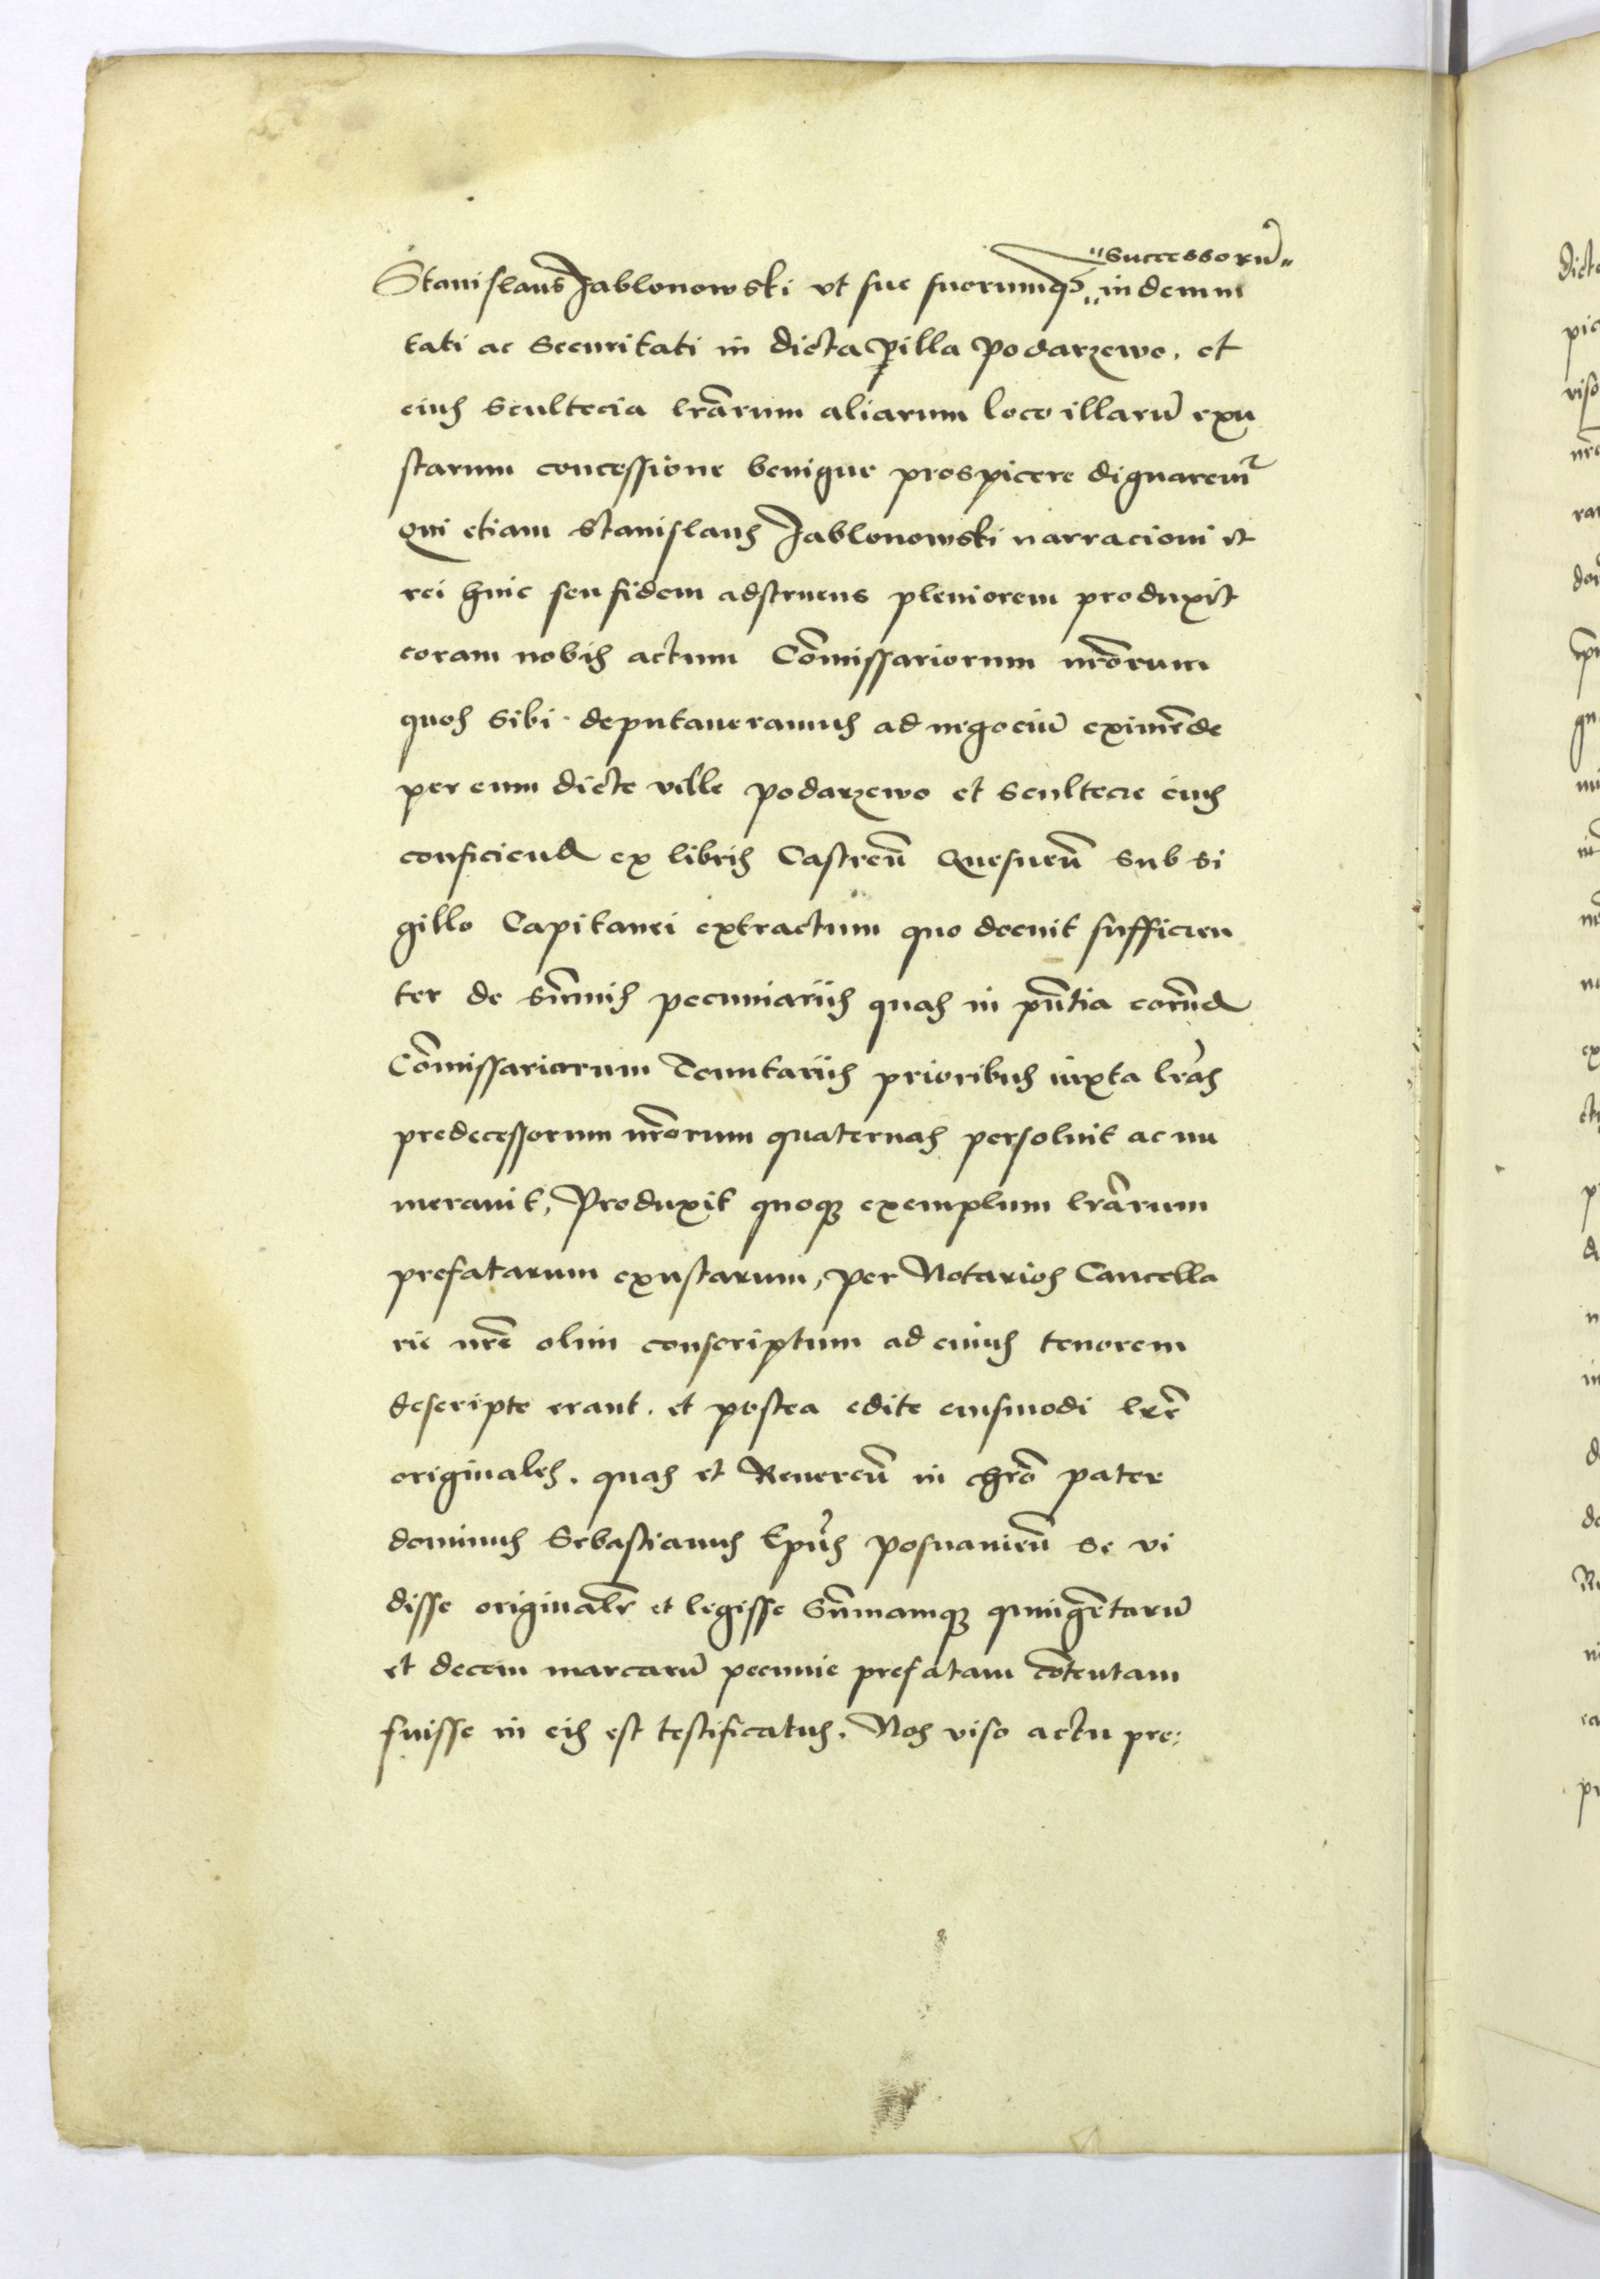 "successorū"
Stanislaus Jablonowski vt sue suorumq₃ " indemni
tati ac securitati in dicta villa Podarzewo. et
eius scultecia lrārum aliarum loco illarū exu
starum concessione benigne prospicere dignarem̄
Qui etiam Stanislaus Jablonowski narracioni et
rei huic seu fidem adstruens pleniorem produxit
coram nobis actum Cōmissariorum nrōrum
quos sibi deputaueramus ad negociū eximēde
per eum dicte ville podarzewo et scultecie eius
conficiend ex libris Castreñ Gnesneñ sub si
gillo Capitanei extractum quo docuit sufficien
ter de sūmis pecuniariis quas in pn̄tia eorund
Cōmissariorum Tenutariis prioribus iuxta lrās
predecessorum nrōrum quaternas persoluit ac nu
merauit, Produxit quoq₃ exemplum lrārum
prefatarum exustarum, per Notarios Cancella
rie nrē olim conscriptum ad cuius tenorem
descripte erant. et postea edite eiusmodi lrē
originales. quas et Reuereñ in chrō pater
dominus Sebastianus Ep̄us Posnanieñ se vi
disse originalr et legisse Sūmamq₃ quingētarū
et decem marcarū pecunie prefatam cōtentam
fuisse in eis est testificatus. Nos viso actu pre: